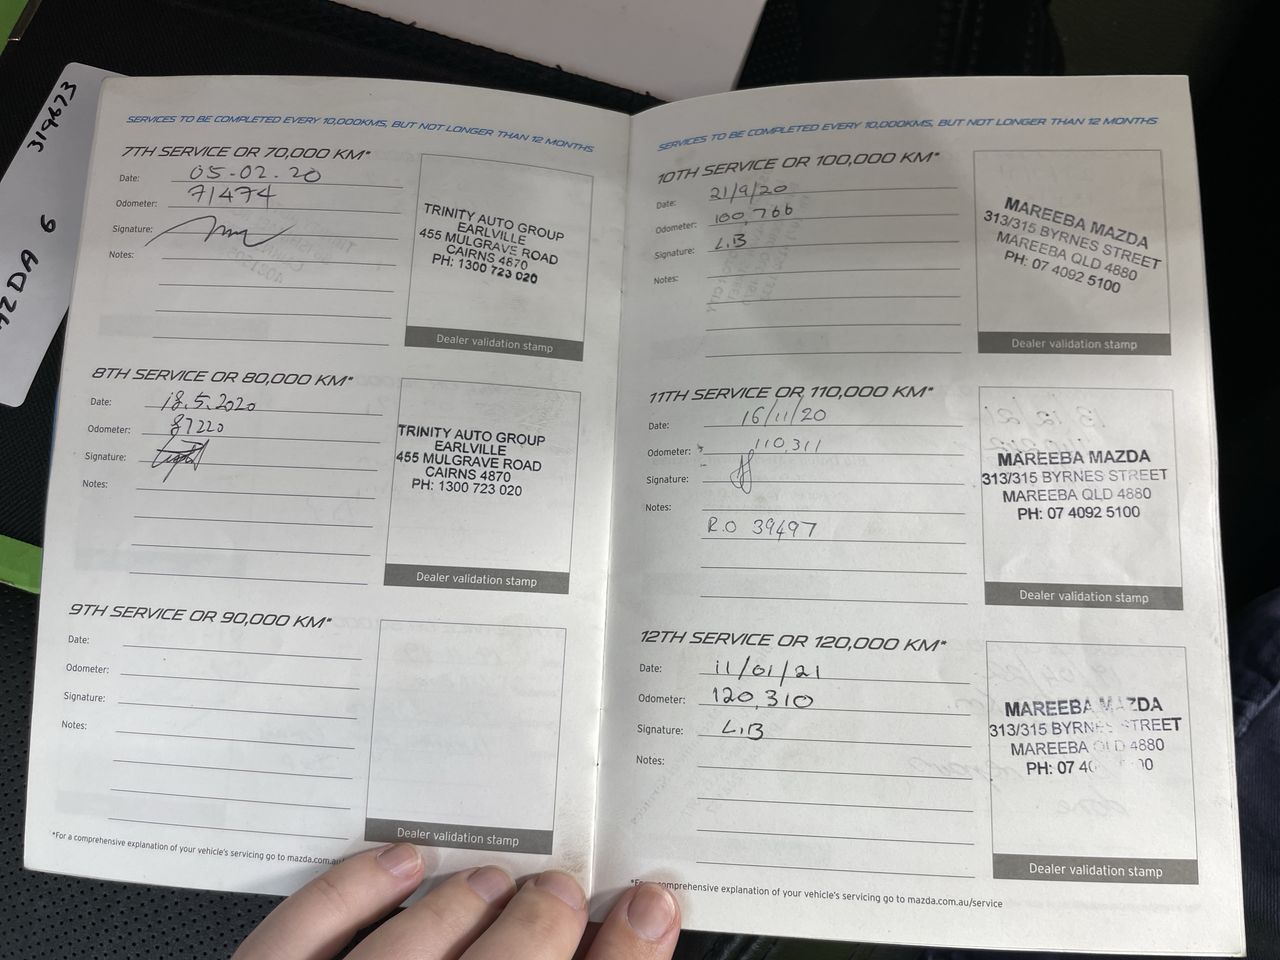 319673
MAZDA 6
SERVICES TO BE COMPLETED EVERY 10,000KMS, BUT NOT LONGER THAN 12 MONTHS
7TH SERVICE OR 70,000 KM*
Date: 05-02.20
Odometer: 71474
Signature:
Notes:
TRINITY AUTO GROUP
EARLVILLE
455 MULGRAVE ROAD
CAIRNS 4870
PH: 1300 723 020
Dealer validation stamp
8TH SERVICE OR 80,000 KM*
Date: 18.5.2020
Odometer: 87220
Signature:
Notes:
TRINITY AUTO GROUP
EARLVILLE
455 MULGRAVE ROAD
CAIRNS 4870
PH: 1300 723 020
Dealer validation stamp
9TH SERVICE OR 90,000 KM*
Date:
Odometer:
Signature:
Notes:
Dealer validation stamp
*For a comprehensive explanation of your vehicle's servicing go to mazda.com.au/
SERVICES TO BE COMPLETED EVERY 10,000KMS, BUT NOT LONGER THAN 12 MONTHS
10TH SERVICE OR 100,000 KM*
Date: 21/9/20
Odometer: 100,766
Signature: L.B
Notes:
MAREEBA MAZDA
313/315 BYRNES STREET
MAREEBA QLD 4880
PH: 07 4092 5100
Dealer validation stamp
11TH SERVICE OR 110,000 KM*
Date: 16/11/20
Odometer: 110,311
Signature:
Notes:
R.O 39497
MAREEBA MAZDA
313/315 BYRNES STREET
MAREEBA QLD 4880
PH: 07 4092 5100
Dealer validation stamp
12TH SERVICE OR 120,000 KM*
Date: 11/01/21
Odometer: 120,310
Signature: L.B
Notes:
MAREEBA MAZDA
313/315 BYRNES STREET
MAREEBA QLD 4880
PH: 07 40 00
Dealer validation stamp
*For comprehensive explanation of your vehicle's servicing go to mazda.com.au/service